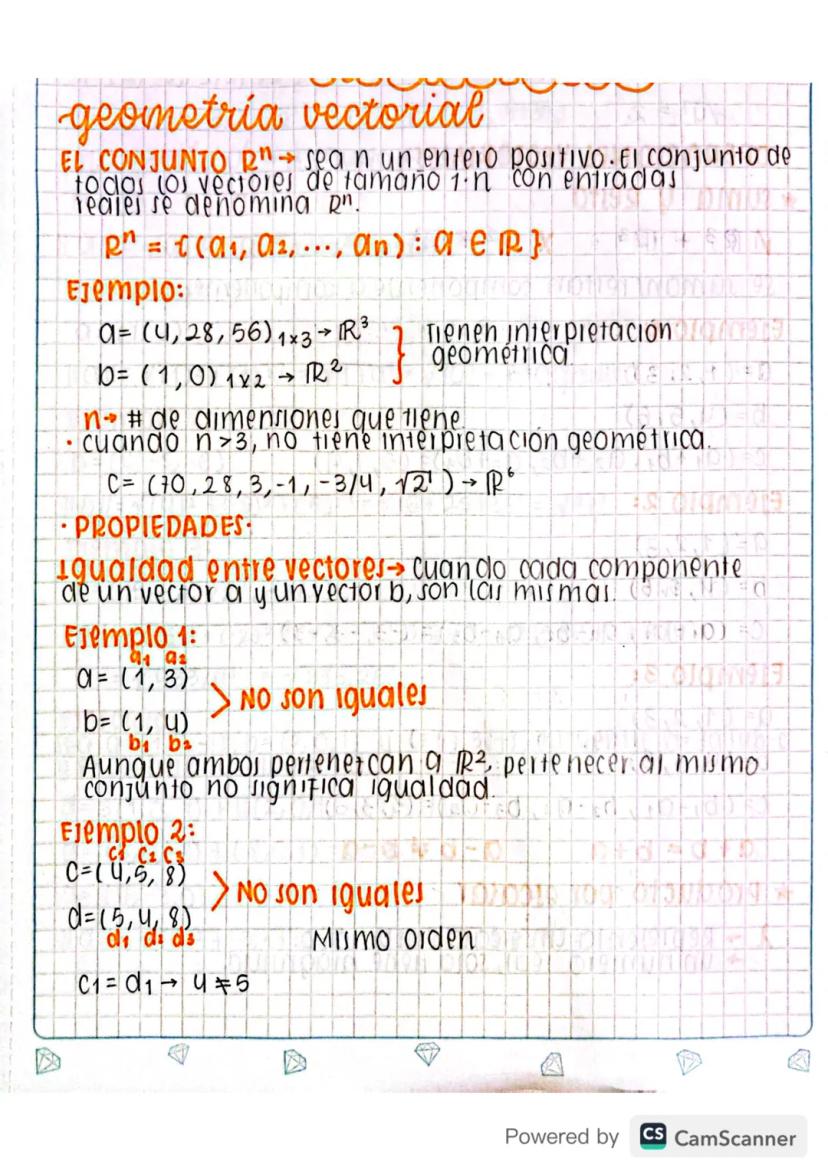 geometría vectorial
EL CONJUNTO Rⁿ → sea n un entero positivo. El conjunto de
todos los vectores de tamaño 1·n con entradas
reales se denomina Rⁿ.
Rⁿ = {(a₁, a₂, ..., an) : a ∈ ℝ}
Ejemplo:
a= (4, 28, 56) ₁ₓ₃ → ℝ³ } Tienen interpretación
geométrica
b= (1, 0) ₁ₓ₂ → ℝ²
n→ # de dimensiones que tiene.
· cuando n >3, no tiene interpretación geométrica.
C= (70, 28, 3, -1, -3/4, √2) → ℝ⁶
· PROPIEDADES·
Igualdad entre vectores → Cuando cada componente
de un vector a y un vector b, son las mismas.
Ejemplo 1:
a₁ a₂
a= (1, 3)
> NO son iguales
b= (1, 4)
b₁ b₂
Aunque ambos pertenezcan a ℝ², pertenecer al mismo
conjunto no significa igualdad.
Ejemplo 2:
C₁ C₂ C₃
C=(4, 5, 8)
> No son iguales
d=(5, 4, 8)
d₁ d₂ d₃
Mismo orden
C₁ = d₁ → 4 ≠ 5
Powered by CS CamScanner